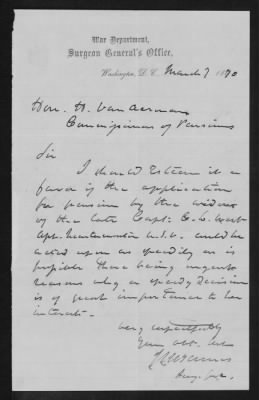 War Department,
Surgeon General's Office,
Washington, D. C. March 7 1870
Hon. H. Van Aernam
Commissioner of Pensions
Sir
I should esteem it a
favor if the application
for pension by the widow
of the late Capt. C. W.
Asst. Quartermaster U.S.V. could be
acted upon as speedily as is
possible there being urgent
reasons why a speedy decision
is of great importance to her
interest.
Very respectfully
Your obt. svt
Surg. Gen.